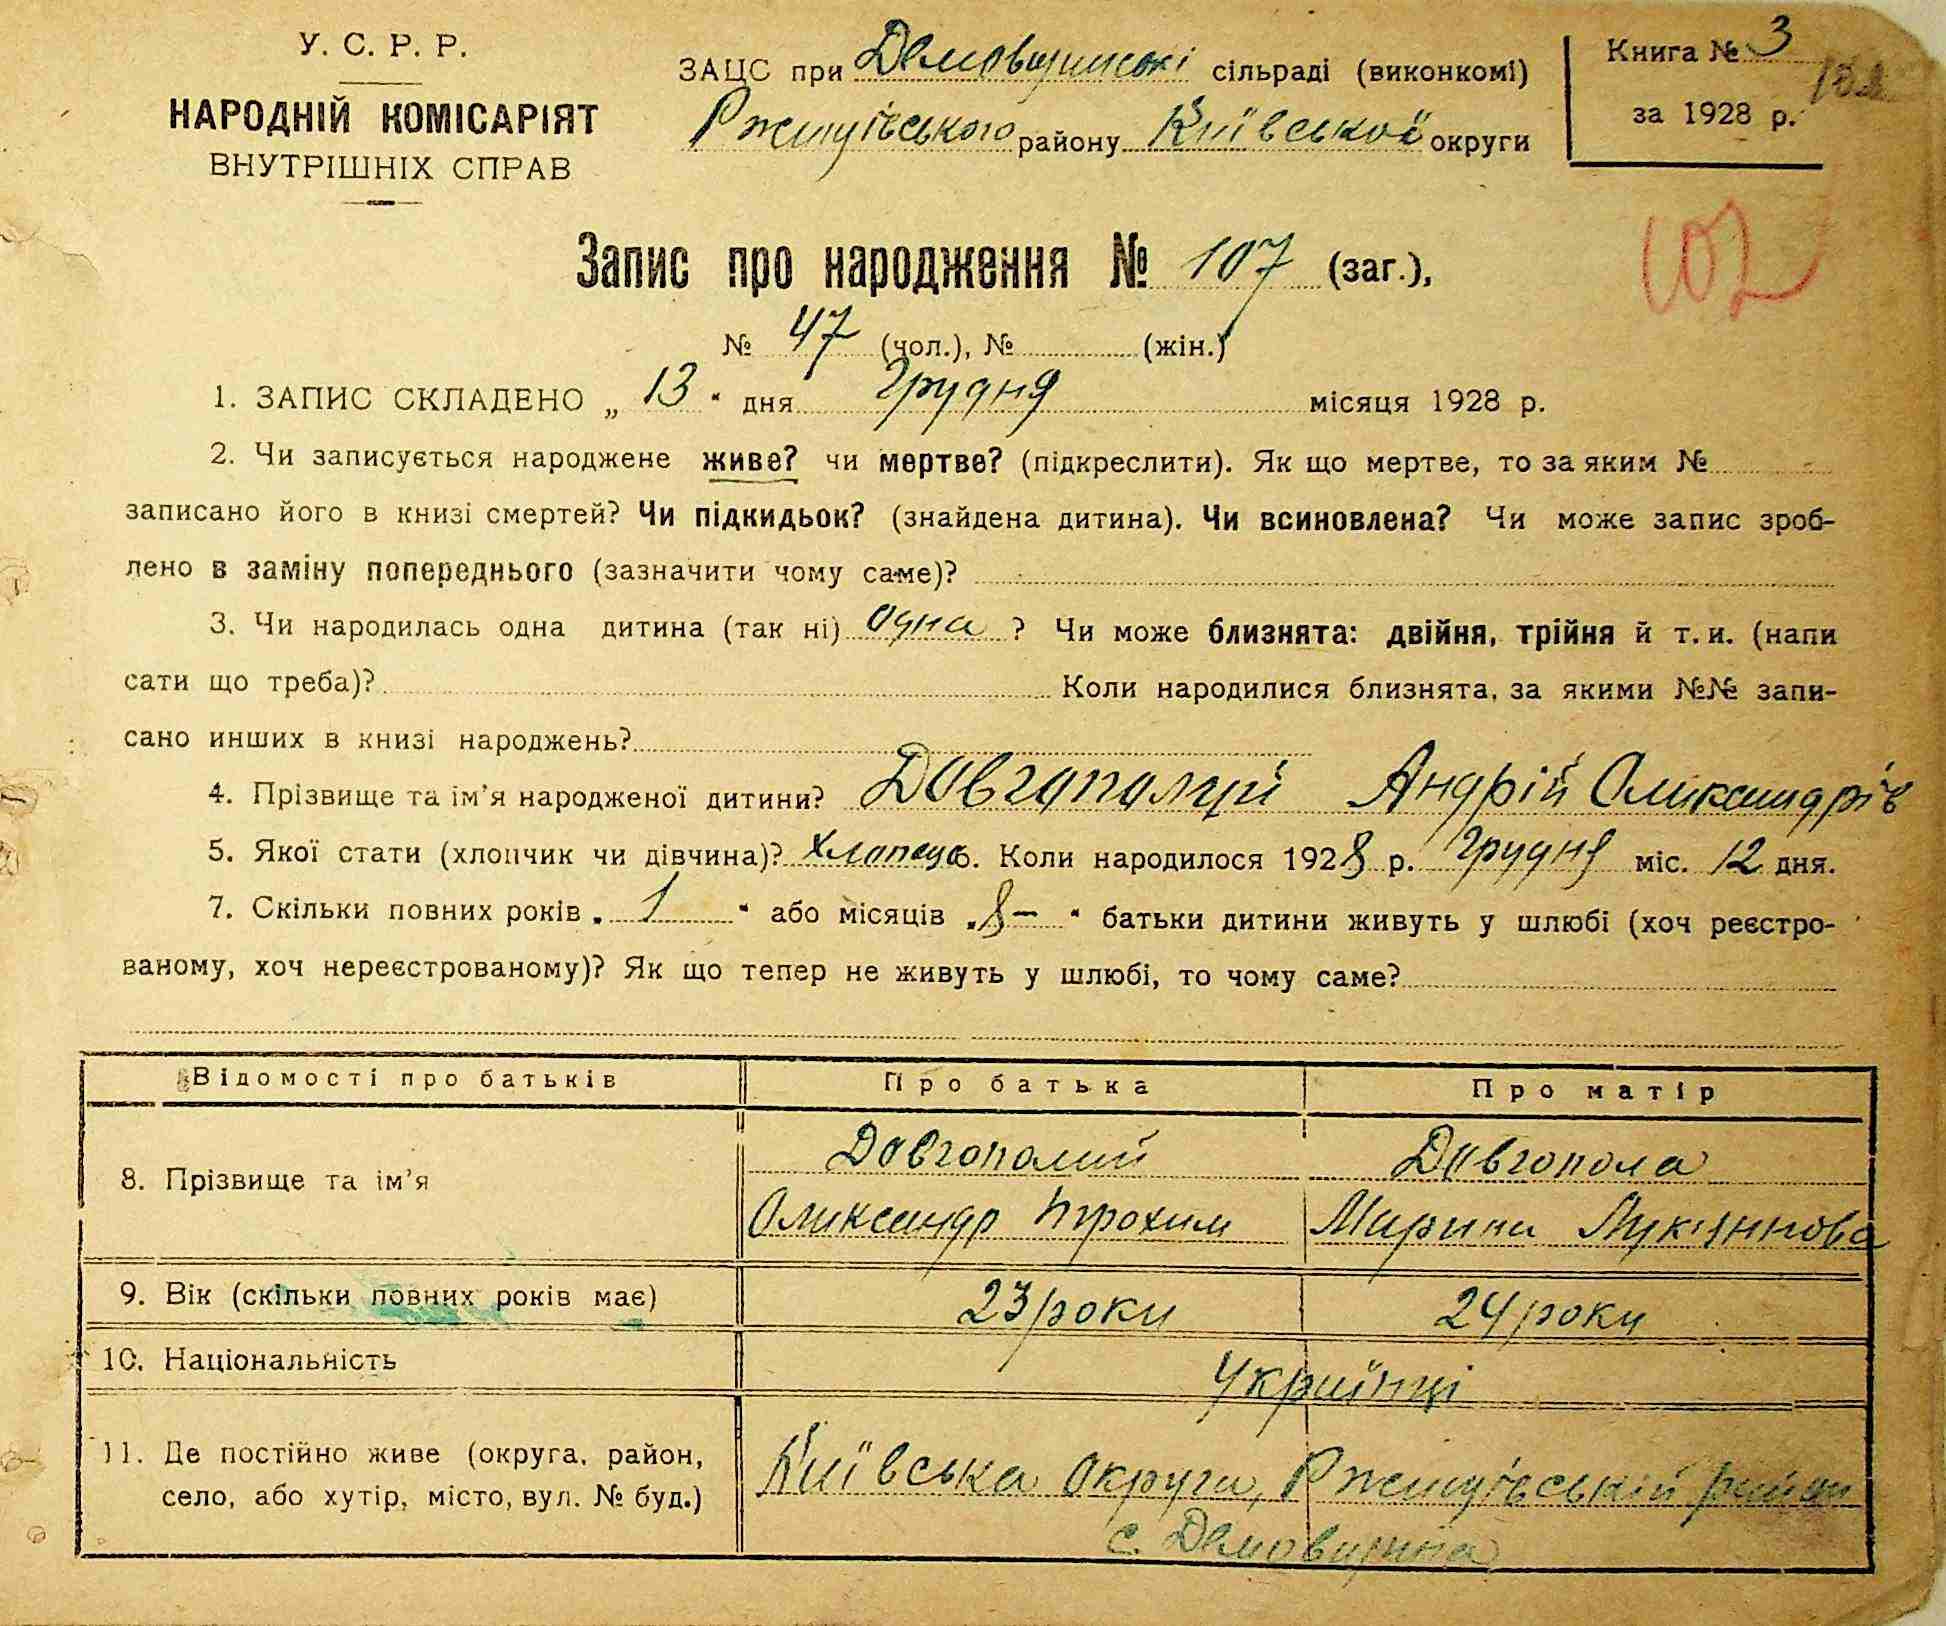 У. С. Р. Р.
НАРОДНІЙ КОМІСАРІЯТ
ВНУТРІШНІХ СПРАВ
ЗАЦС при Демовщинські сільраді (виконкомі)
Ржищівського району Київської округи
Книга № 3
за 1928 р.
102
Запис про народження № 107 (заг.),
№ 47 (чол.), № (жін.)
1. ЗАПИС СКЛАДЕНО „ 13 “ дня Грудня місяця 1928 р.
2. Чи записується народжене живе? чи мертве? (підкреслити). Як що мертве, то за яким №
записано його в книзі смертей? Чи підкидьок? (знайдена дитина). Чи всиновлена? Чи може запис зроб-
лено в заміну попереднього (зазначити чому саме)?
3. Чи народилась одна дитина (так ні) одна ? Чи може близнята: двійня, трійня й т. и. (напи
сати що треба)? Коли народилися близнята, за якими №№ запи-
сано инших в книзі народжень?
4. Прізвище та ім'я народженої дитини? Довгополий Андрій Олександрів
5. Якої стати (хлопчик чи дівчина)? Хлопець 6. Коли народилося 1928 р. Грудня міс. 12 дня.
7. Скільки повних років „ 1 “ або місяців „ 8 – “ батьки дитини живуть у шлюбі (хоч реєстро-
ваному, хоч нереєстрованому)? Як що тепер не живуть у шлюбі, то чому саме?
Відомості про батьків Про батька Про матір
8. Прізвище та ім'я Довгополий Довгопола
Олександр Трохим Марина
9. Вік (скільки повних років має) 23 роки 24 роки
10. Національність Українці
11. Де постійно живе (округа, район,
село, або хутір, місто, вул. № буд.) Київська округа, Ржищівський район
с. Демовщина